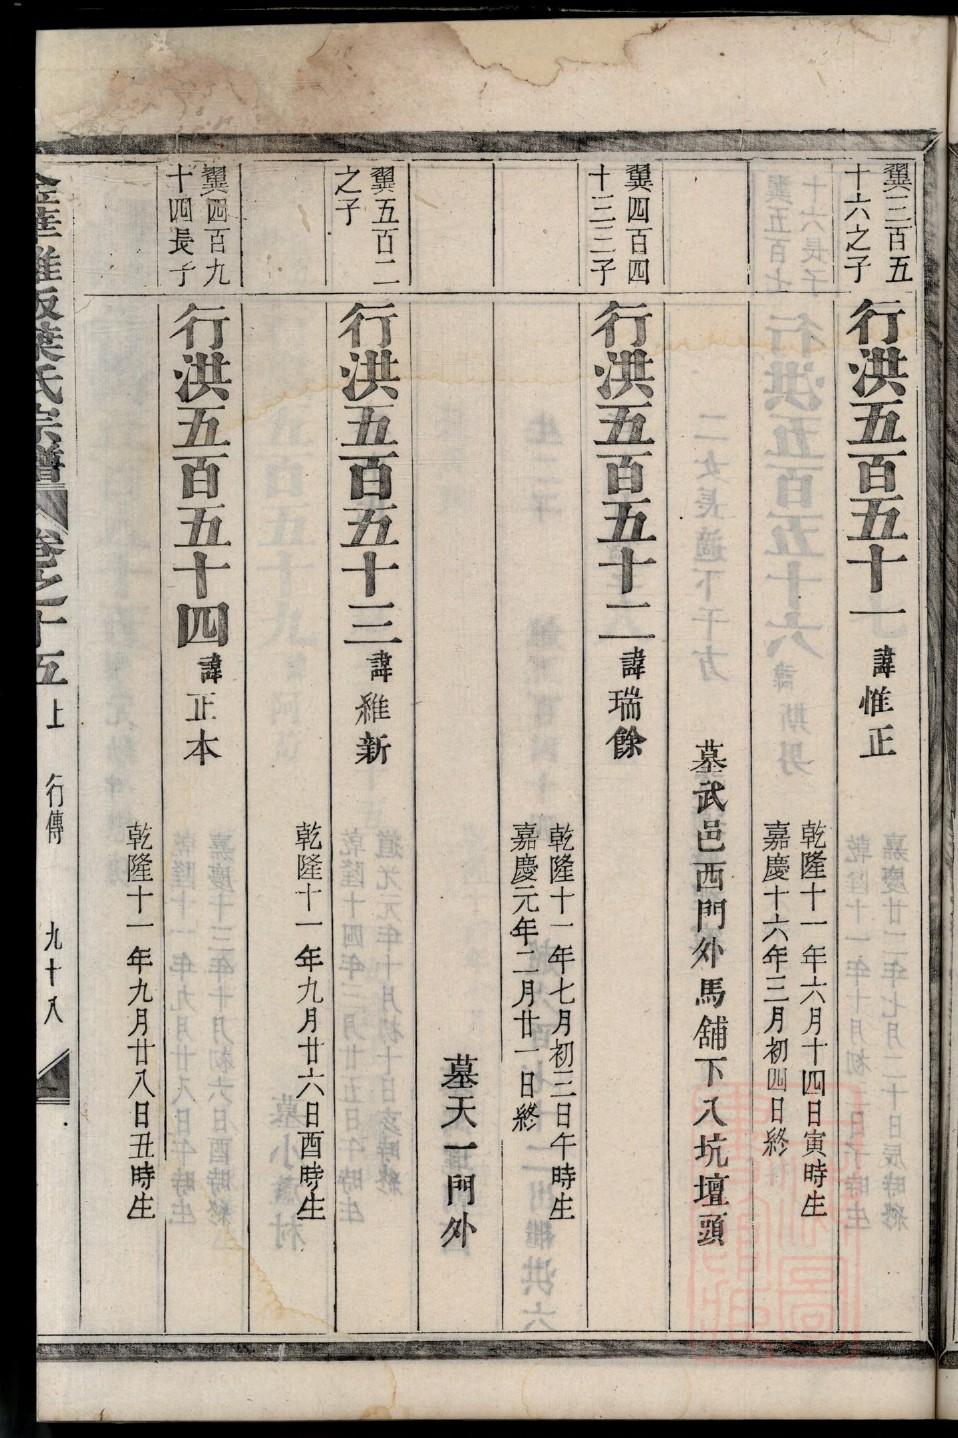 翼三百五
十六之子
行洪五百五十一 諱惟正
乾隆十一年六月十四日寅時生
嘉慶十六年三月初四日終
墓武邑西門外馬舖下八坑壇頭
翼四百四
十三三子
行洪五百五十二 諱瑞餘
乾隆十一年七月初三日午時生
嘉慶元年二月廿一日終
墓天一門外
翼五百二
之子
行洪五百五十三 諱維新
乾隆十一年九月廿六日酉時生
翼四百九
十四長子
行洪五百五十四 諱正本
乾隆十一年九月廿八日丑時生
葉氏宗譜 卷之十五上 行傳 九十八